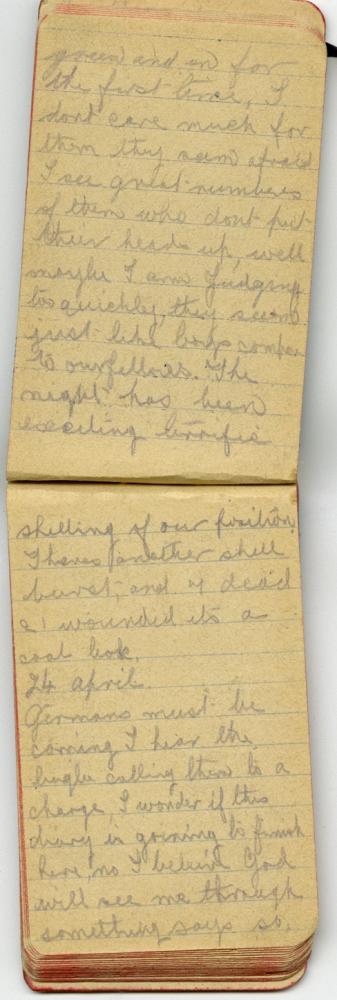 green and in for
the first time, I
dont care much for
them they seem afraid
I see great numbers
of them who dont put
their heads up, well
maybe I am judging
to quickly, they seem
just like boys compare
to our fellows. The
night has been
exciting terrific
shelling of our position
Theres another shell
burst, and 4 dead
& 1 wounded its a
coal box.
24 april.
Germans must be
coming I hear the
bugle calling them to a
charge, I wonder if this
diary is goining to finish
here, no I believe God
will see me through
something says so.